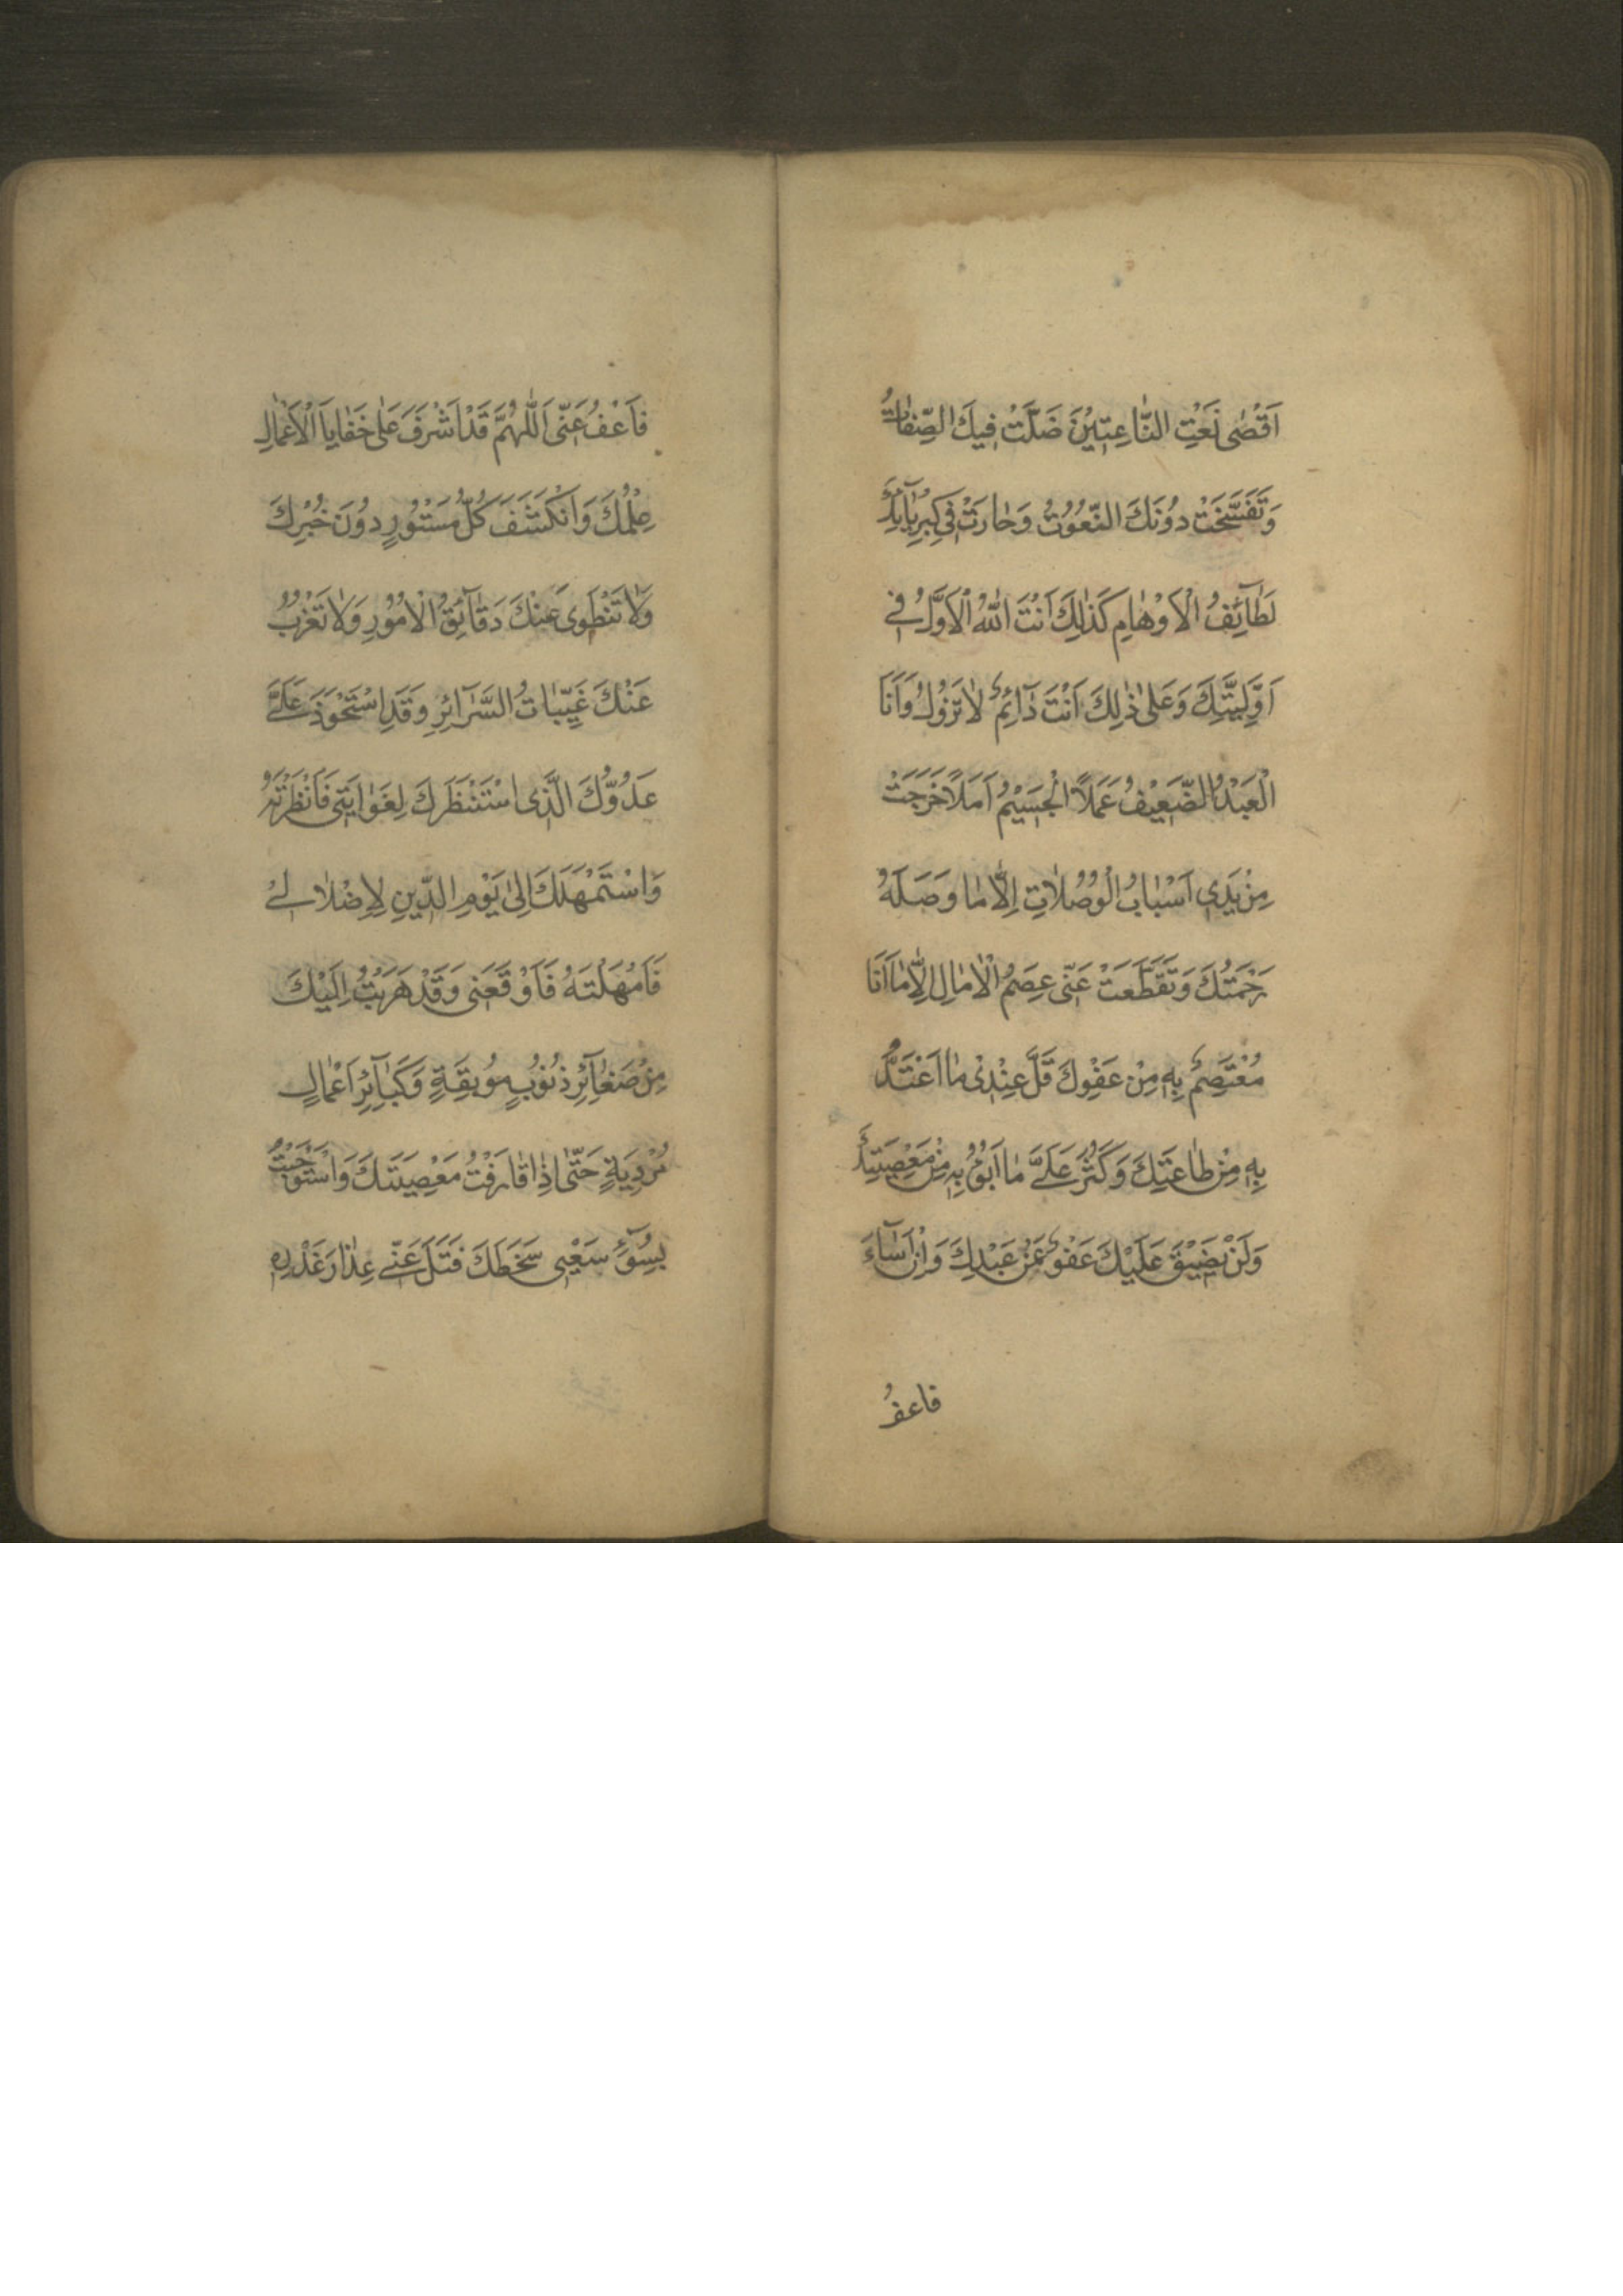 اَقْصٰى نَعْتِ النّٰاعِتِيْنَ ضَلَّتْ فِيكَ الصِّفٰاتُ
وَتَفَسَّخَتْ دُونَكَ النُّعُوُتُ وَحٰارَتْ فِي كِبْرِيٰآئِكَ
لَطٰآئِفُ الْاَوْهٰامِ كَذٰلِكَ اَنْتَ اللّٰهُ الْاَوَّلُ فِي
اَوَّلِيَّتِكَ وَعَلىٰ ذٰلِكَ اَنْتَ دٰآئِمٌ لٰا تَزُوْلُ وَاَنَا
الْعَبْدُ الضَّعِيْفُ عَمَلاً الْجَسَيْمُ اَمَلاً خَرَجَتْ
مِنْ يَدَيِ اَسْبٰابُ الْوُصُلٰاتِ اِلّٰا مٰا وَصَلَهُ
رَحْمَتُكَ وَتَقَطَّعَتْ عَنّى عِصَمُ الْاٰمٰالِ اِلّٰا مٰا اَنَا
مُعْتَصِمٌ بِهِ مِنْ عَفْوِكَ قَلَّ عِنْدِىْ مٰا اَعْتَدُّ
بِهِ مِنْ طٰاعَتِكَ وَكَثُرَ عَلَىَّ مٰا اَبُوْءُ بِهِ مِنْ مَعْصِيَتِكَ
وَلَنْ يَضِيْقَ عَلَيْكَ عَفْوٌ عَنْ عَبْدِكَ وَاِنْ اَسٰآءَ
فاعفُ
فَاَعْفُ عَنّى اَللّٰهُمَّ قَدْ اَشْرَفَ عَلىٰ خَفٰايَا الْاَعْمٰالِ
عِلْمُكَ وَانْكَشَفَ كُلُّ مَسْتُوْرٍ دوُنَ خُبْرِكَ
وَلٰا تَنْطَوِى عَنْكَ دَقٰآئِقُ الْاُمُوْرِ وَلٰا تَعْزُبُ
عَنْكَ غَيِّبٰاتُ السَّرٰآئِرِ وَقَدِ اسْتَحْوَذَ عَلَىَّ
عَدُوُّكَ الَّذِى اسْتَنْظَرَكَ لِغَوٰايَتِى فَاَنْظَرْتَهُ
وَاسْتَمْهَلَكَ اِلىٰ يَوْمِ الدّيِنِ لِاِضْلٰالِىْ
فَاَمْهَلْتَهُ فَاَوْقَعَنِى وَقَدْ هَرَبْتُ اِلَيْكَ
مِنْ صَغٰآئِرِ ذُنُوُبٍ مُوُبِقَةٍ وَكَبٰآئِرِ اَعْمٰالٍ
مُرْدِيَةٍ حَتّٰى اِذٰا قٰارَفْتُ مَعْصِيَتَكَ وَاسْتَوْجَبْتُ
بِسُوٓءِ سَعْيِى سَخَطَكَ فَتَلَ عَنّى عِذٰارَ غَدْرِهِ